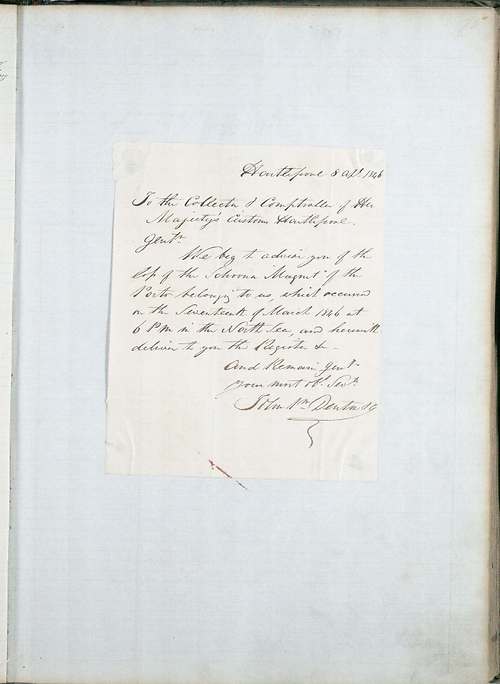 Hartlepool 8 Apl. 1846
To the Collector & Comptroller of Her
Majesty's Customs Hartlepool.
Gentn.
We beg to advise you of the
loss of the Schooner "Magnet" of the
Port belonging to us, which occured
on the Seventeenth of March 1846 at
6 P.M in the North Sea, and herewith
deliver to you the Register &
And Remain Gentn.
your most obt. Servts.
John Wm Denton &